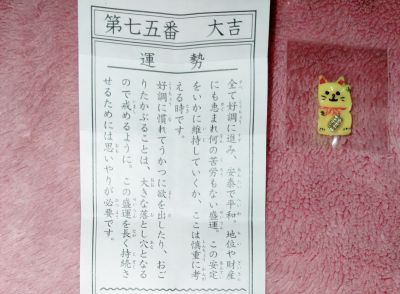 第七五番 大吉
運勢
全て好調に進み、安泰で平和。地位や財産
にも恵まれ何の苦労もない盛運。この安定
をいかに維持していくか、ここは慎重に考
える時です。
好調に慣れてうかつに欲を出したり、おご
りたかぶることは、大きな落とし穴となる
ので戒めるように。この盛運を長く持続さ
せるためには思いやりが必要です。